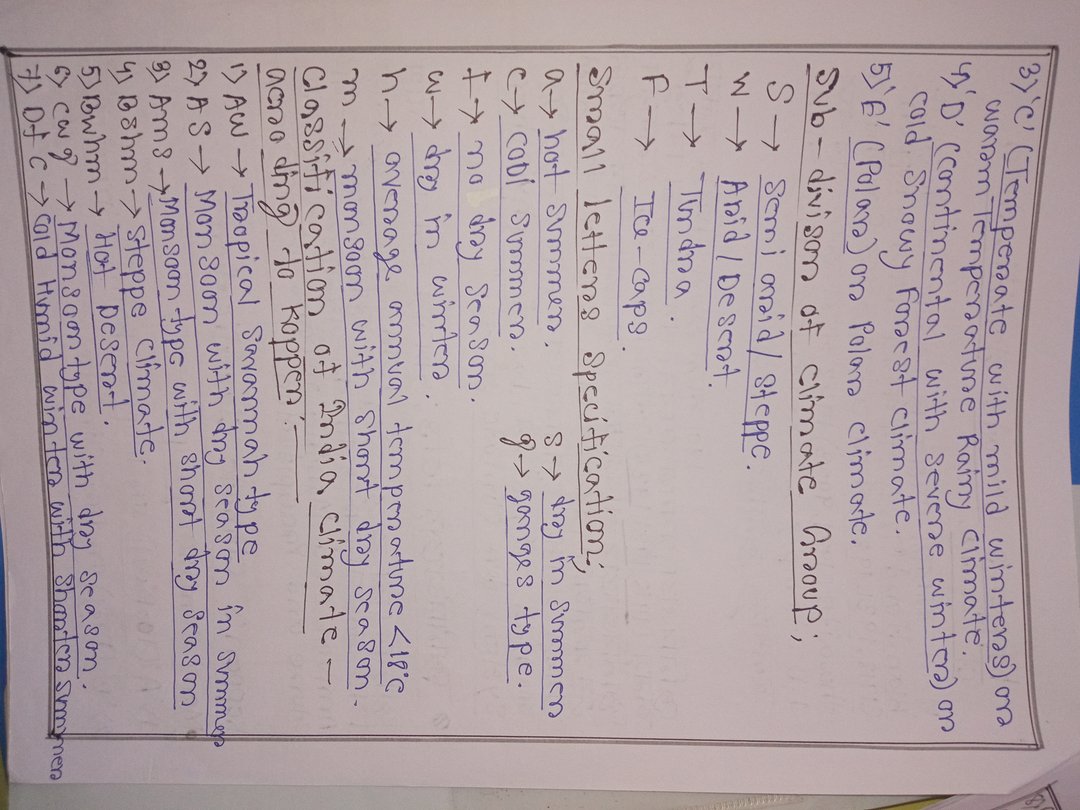 3) 'C' (Temperate with mild winters) or
warm Temperature Rainy climate.
4) 'D' (continental with severe winter) or
cold Snowy Forest climate.
5) 'E' (Polar) or Polar climate.
Sub-divison of climate Group;
S → Semi arid / steppe.
W → Arid / Desert.
T → Tundra.
F → Ice-caps.
Small letters Specification;
a → hot summer.
c → cold summer. s → dry in summer
f → no dry season. g → ganges type.
w → dry in winter.
h → average annual temperature <18°c
m → monsoon with short dry season.
Classification of India climate —
according to Koppen:—
1) AW → Tropical Savannah type
2) AS → Monsoon with dry season in summer
3) Ams → Monsoon type with short dry season
4) Bshm → Steppe climate.
5) Bwhm → Hot Desert.
6) cwg → Monsoon type with dry season.
7) Dfc → Cold Humid winter with shorter summer